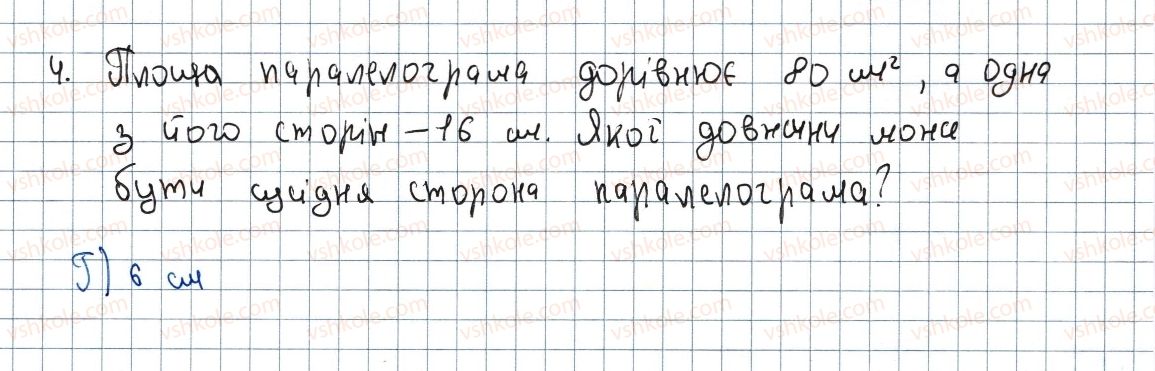 4. Площа паралелограма дорівнює 80 см², а одна
з його сторін – 16 см. Якої довжини може
бути сусідня сторона паралелограма?
Г) 6 см